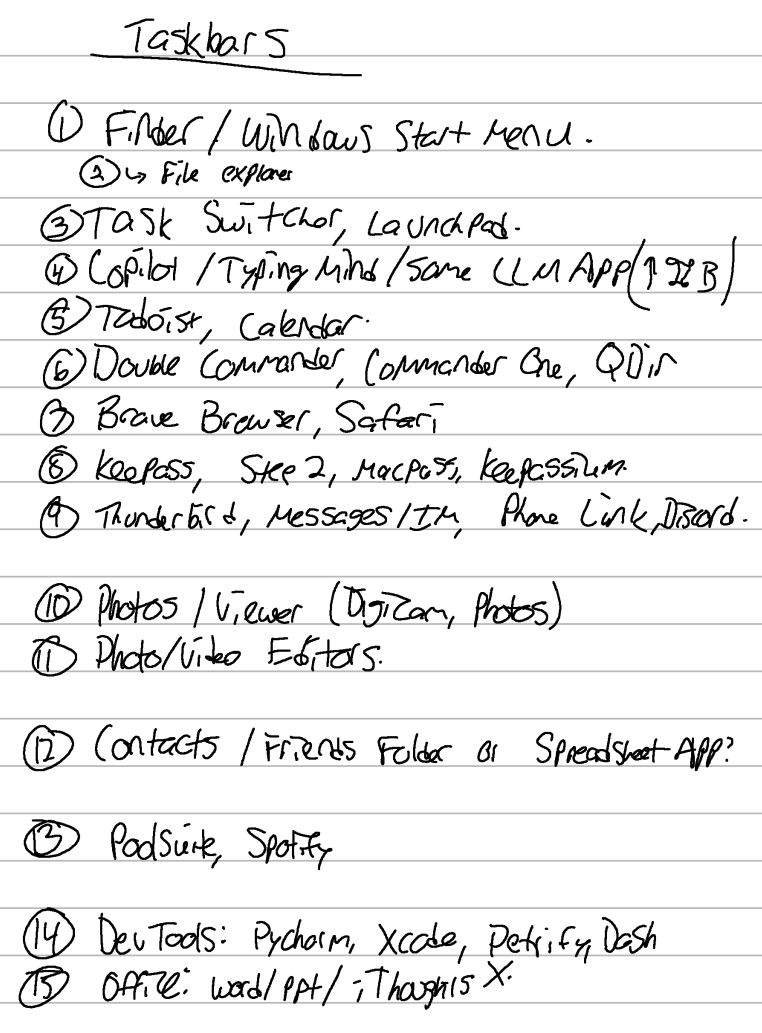 Taskbars
① Finder / Windows Start Menu.
② ↳ File explorer
③ Task Switcher, Launchpad.
④ Copilot / Typing Mind / Some LLM App (↑ B)
⑤ Todoist, Calendar.
⑥ Double Commander, Commander One, QDir
⑦ Brave Browser, Safari
⑧ Keepass, 2, MacPass, Keepassium.
⑨ Thunderbird, Messages/IM, Phone Link, Discord.
⑩ Photos / Viewer (DigiCam, Photos)
⑪ Photo/Video Editors.
⑫ Contacts / Friends Folder or Spreadsheet App?
⑬ Spotify
⑭ Dev Tools: Pycharm, Xcode, Dash
⑮ Office: word/ppt/ iThoughts X.